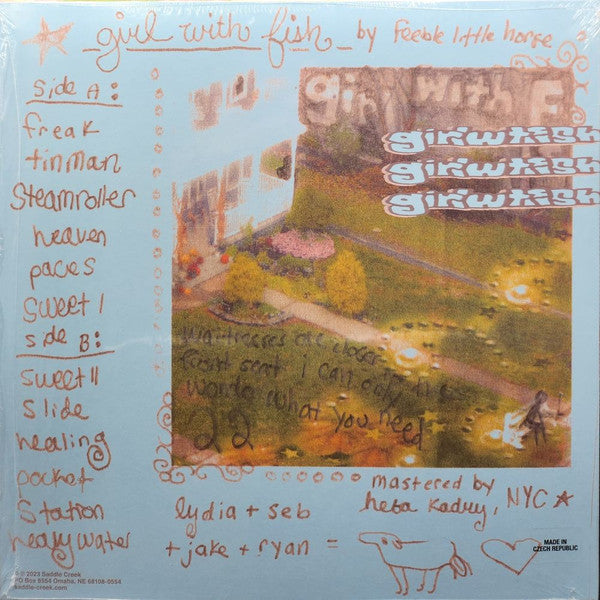 girl with fish by feeble little horse
Side A:
freak
tinman
Steamroller
heaven
paces
Sweet I
side B:
sweet II
Slide
healing
pocket
Station
heavy water
girl with F
girl w fish
girl w fish
girl w fish
waitresses are closer
front seat I can only
wonder what you need
22
mastered by
heba Kadry, NYC
lydia + seb
+ jake + ryan =
MADE IN
CZECH REPUBLIC
© 2023 Saddle Creek
PO Box 8554 Omaha, NE 68108-0554
saddle-creek.com